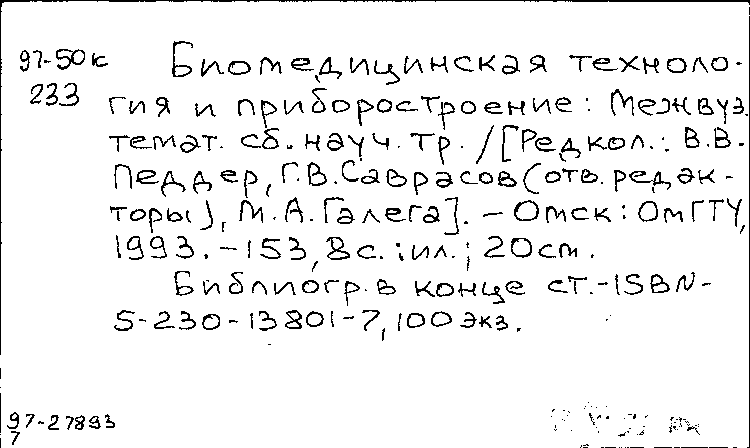 97-50к
233
Биомедицинская техноло-
гия и приборостроение: Межвуз.
темат. сб. науч. тр. / [Редкол.: В.В.
Педдер, Г.В. Саврасов (отв. редак-
торы), М.А. Галега]. - Омск: ОмГТУ,
1993. - 153, 8 с.: ил.; 20 см.
Библиогр. в конце ст. - ISBN-
5-230-13801-7, 100 экз.
97-27893
7